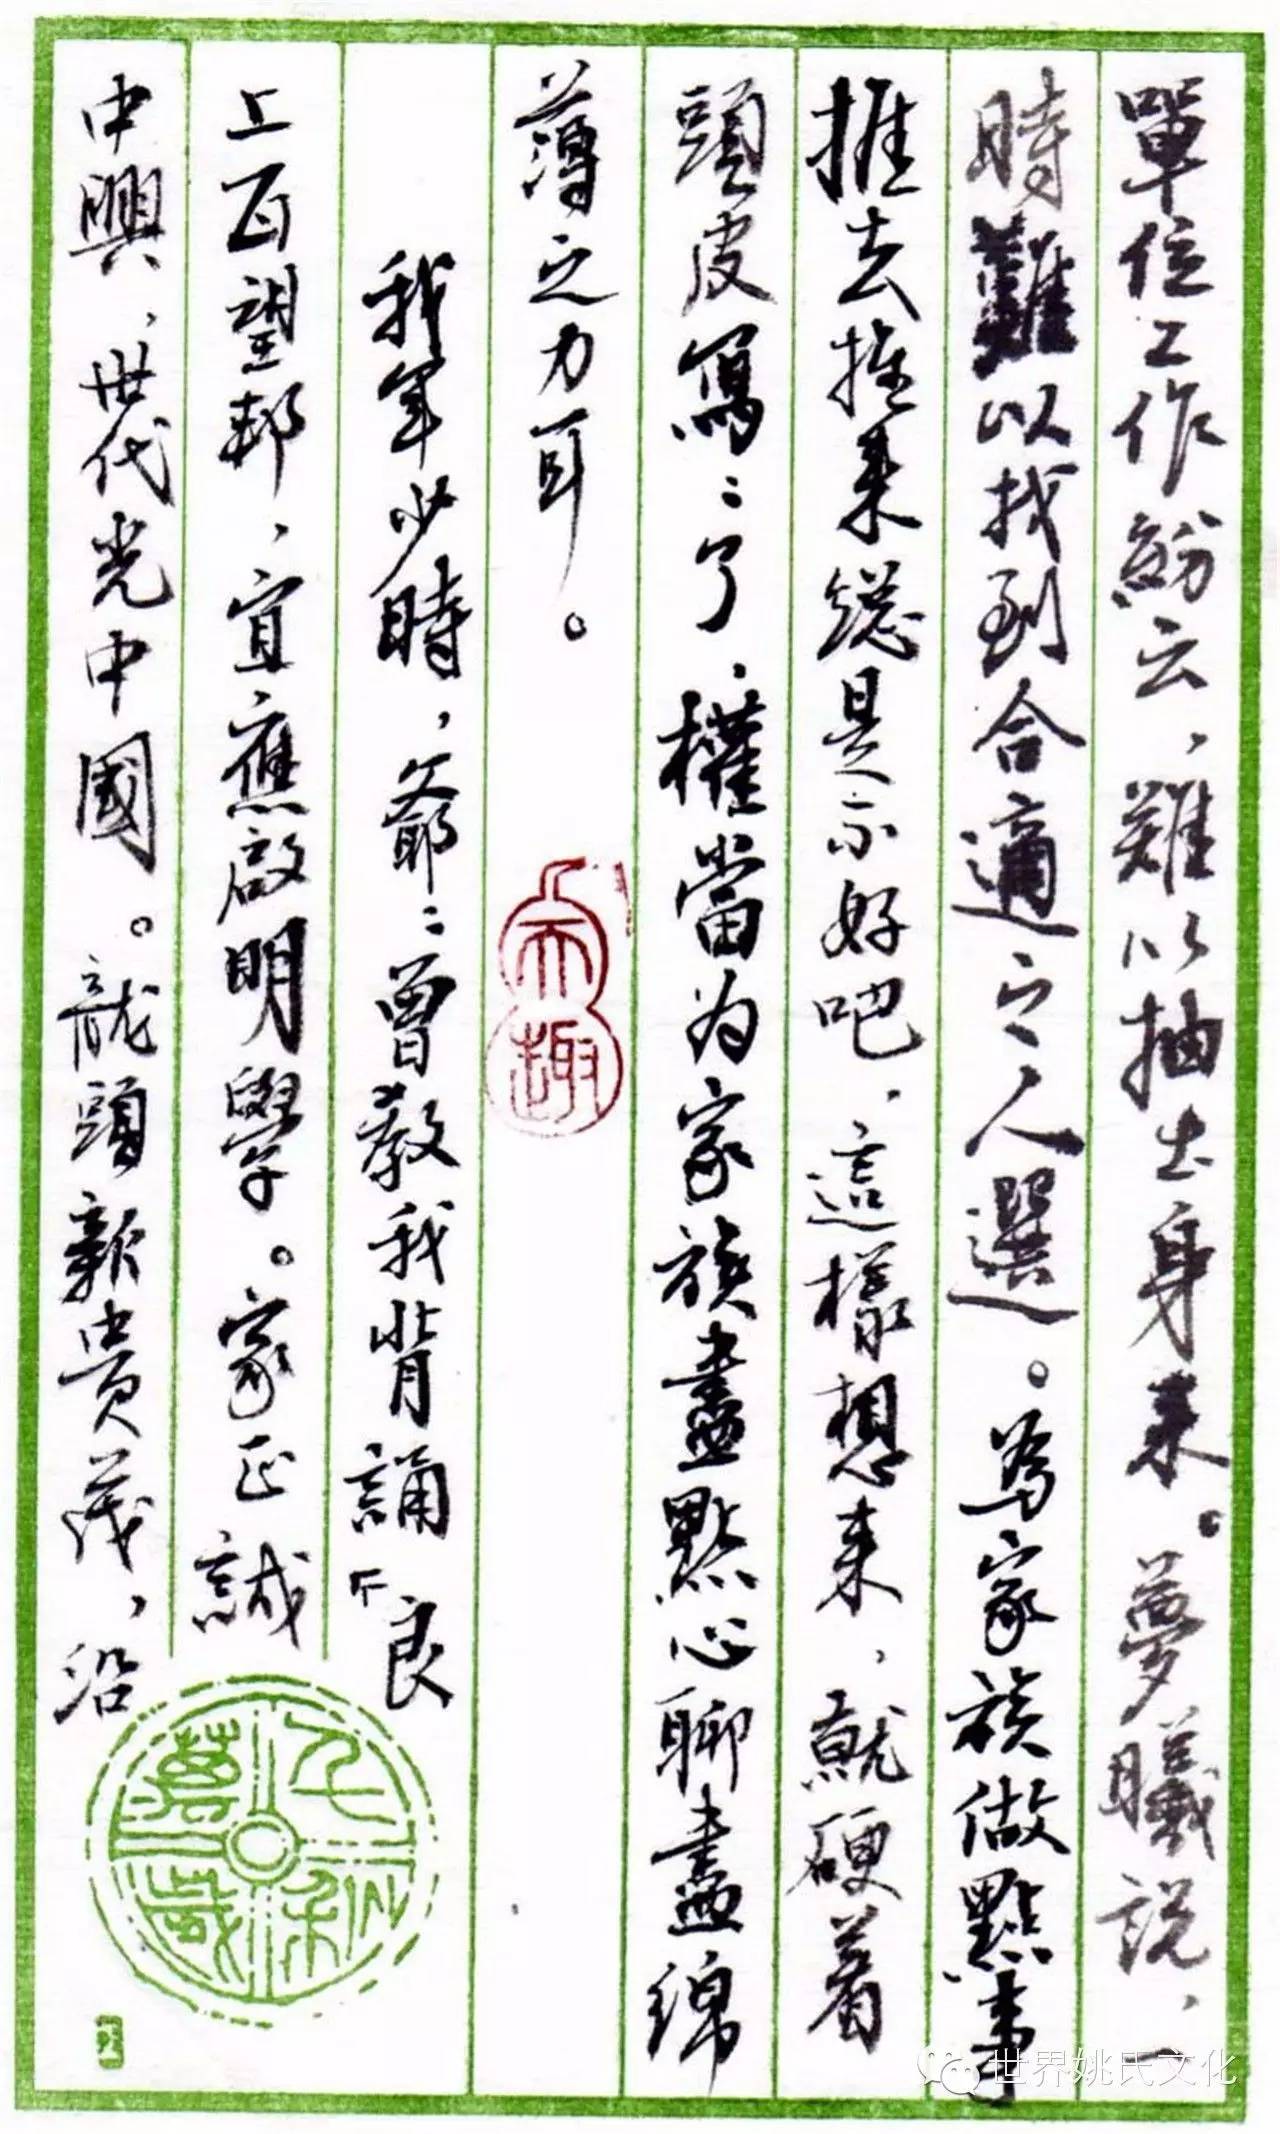 單位工作紛云，難以抽出身来。夢職説，一
時難以找到合適之人選。為家族做點事
推去推来總是不好吧，這樣想来，就硬着
頭皮寫：了，權當为家族盡點心聊盡綿
薄之力耳。
我年少時，爺：曾教我背誦「良
上百望邦，宜應啟明學。家正誠
中興，世代光中國。龍頭新貴茂，沿
天趣
世界姚氏文化